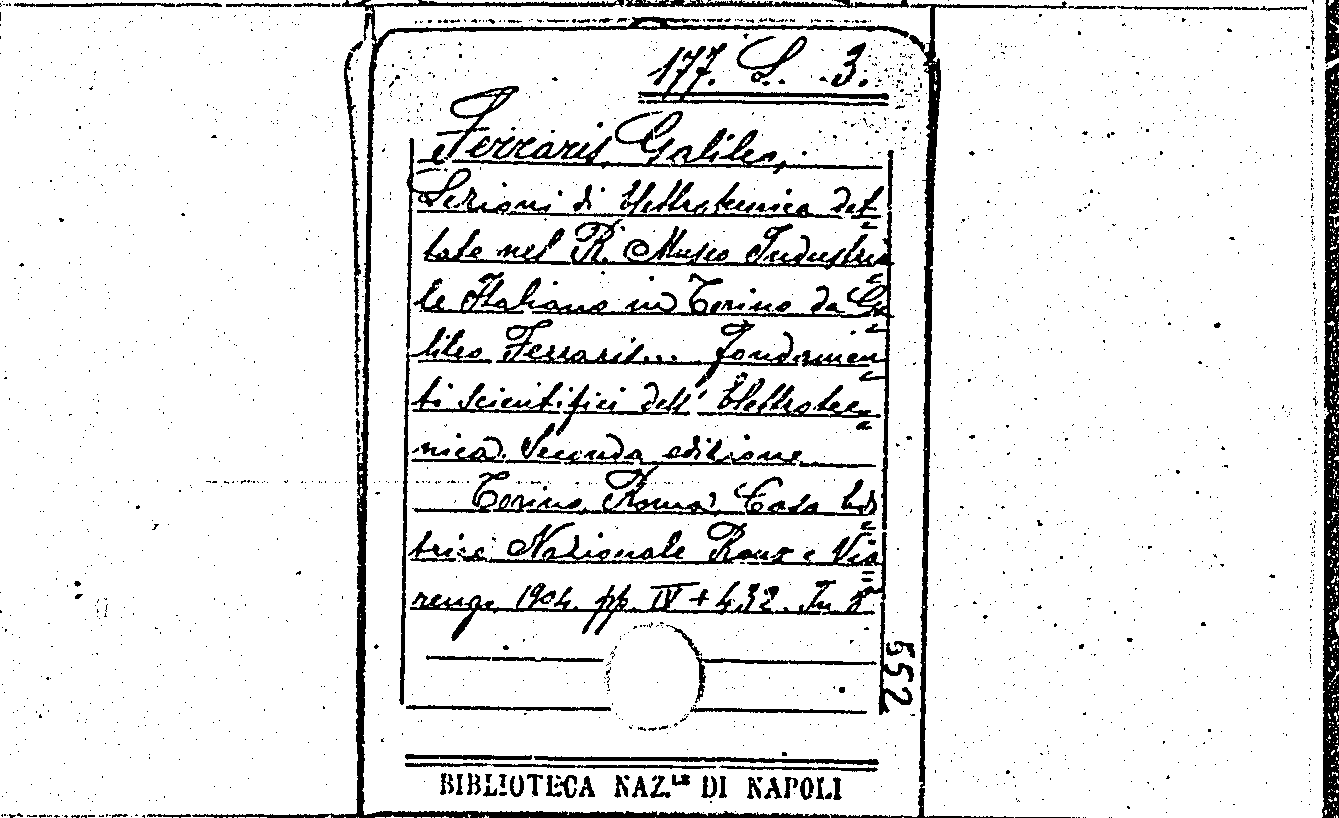 177. L. 3.
Ferraris, Galileo,
Lezioni di Elettrotecnica det=
tate nel R. Museo Industria=
le Italiano in Torino da Ga=
lileo Ferraris... Fondamen=
ti scientifici dell' Elettrotec=
nica. Seconda edizione
Torino, Roma, Casa Edi=
trice Nazionale Roux e Via=
rengo, 1904. pp. IV + 432. In 8°
552
BIBLIOTECA NAZ.LE DI NAPOLI